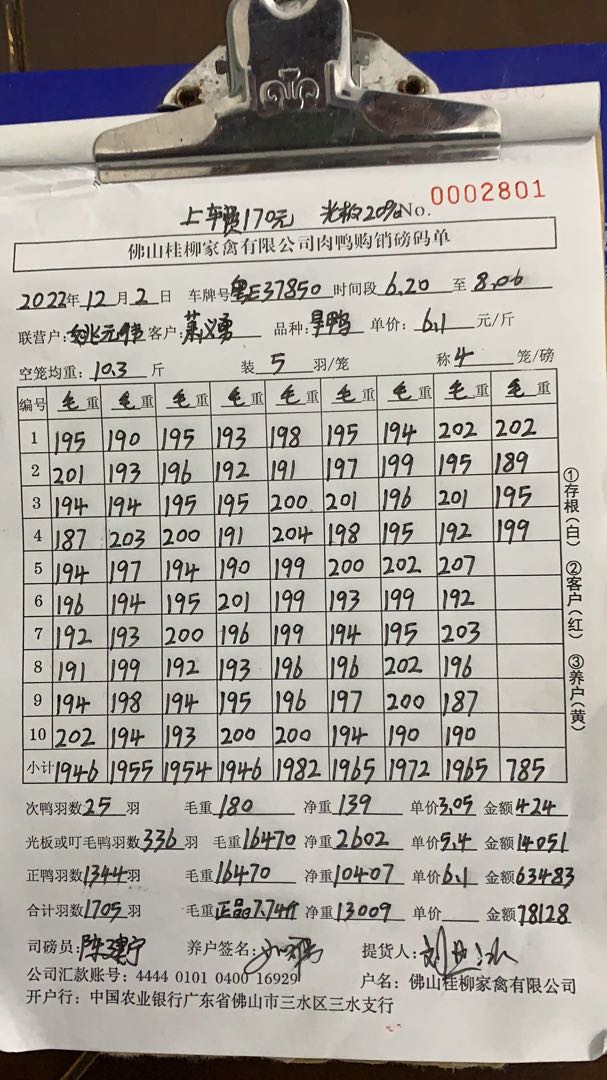 上车费170元 光板20% No. 0002801
佛山桂柳家禽有限公司肉鸭购销磅码单
2022年12月2日 车牌号粤E37850 时间段6.20至8.06
联营户: 姚元伟 客户: 萧义勇 品种: 旱鸭 单价: 6.1元/斤
空笼均重: 10.3斤 装5羽/笼 称4笼/磅
编号 毛重 毛重 毛重 毛重 毛重 毛重 毛重 毛重 毛重
1 195 190 195 193 198 195 194 202 202
2 201 193 196 192 191 197 199 195 189
3 194 194 195 195 200 201 196 201 195
4 187 203 200 191 204 198 195 192 199
5 194 197 194 190 199 200 202 207
6 196 194 195 201 199 193 199 192
7 192 193 200 196 199 194 195 203
8 191 199 192 193 196 196 202 196
9 194 198 194 195 196 197 200 187
10 202 194 193 200 200 194 190 190
小计 1946 1955 1954 1946 1982 1965 1972 1965 785
次鸭羽数25羽 毛重180 净重139 单价3.05 金额424
光板或叮毛鸭羽数336羽 毛重16470 净重2602 单价5.4 金额14051
正鸭羽数1344羽 毛重16470 净重10407 单价6.1 金额63483
合计羽数1705羽 毛重正品7.74斤 净重13009 单价 金额78128
司磅员: 陈建宁 养户签名: 提货人:
公司汇款账号: 4444 0101 0400 16929 户名: 佛山桂柳家禽有限公司
开户行: 中国农业银行广东省佛山市三水区三水支行
①存根(白) ②客户(红) ③养户(黄)